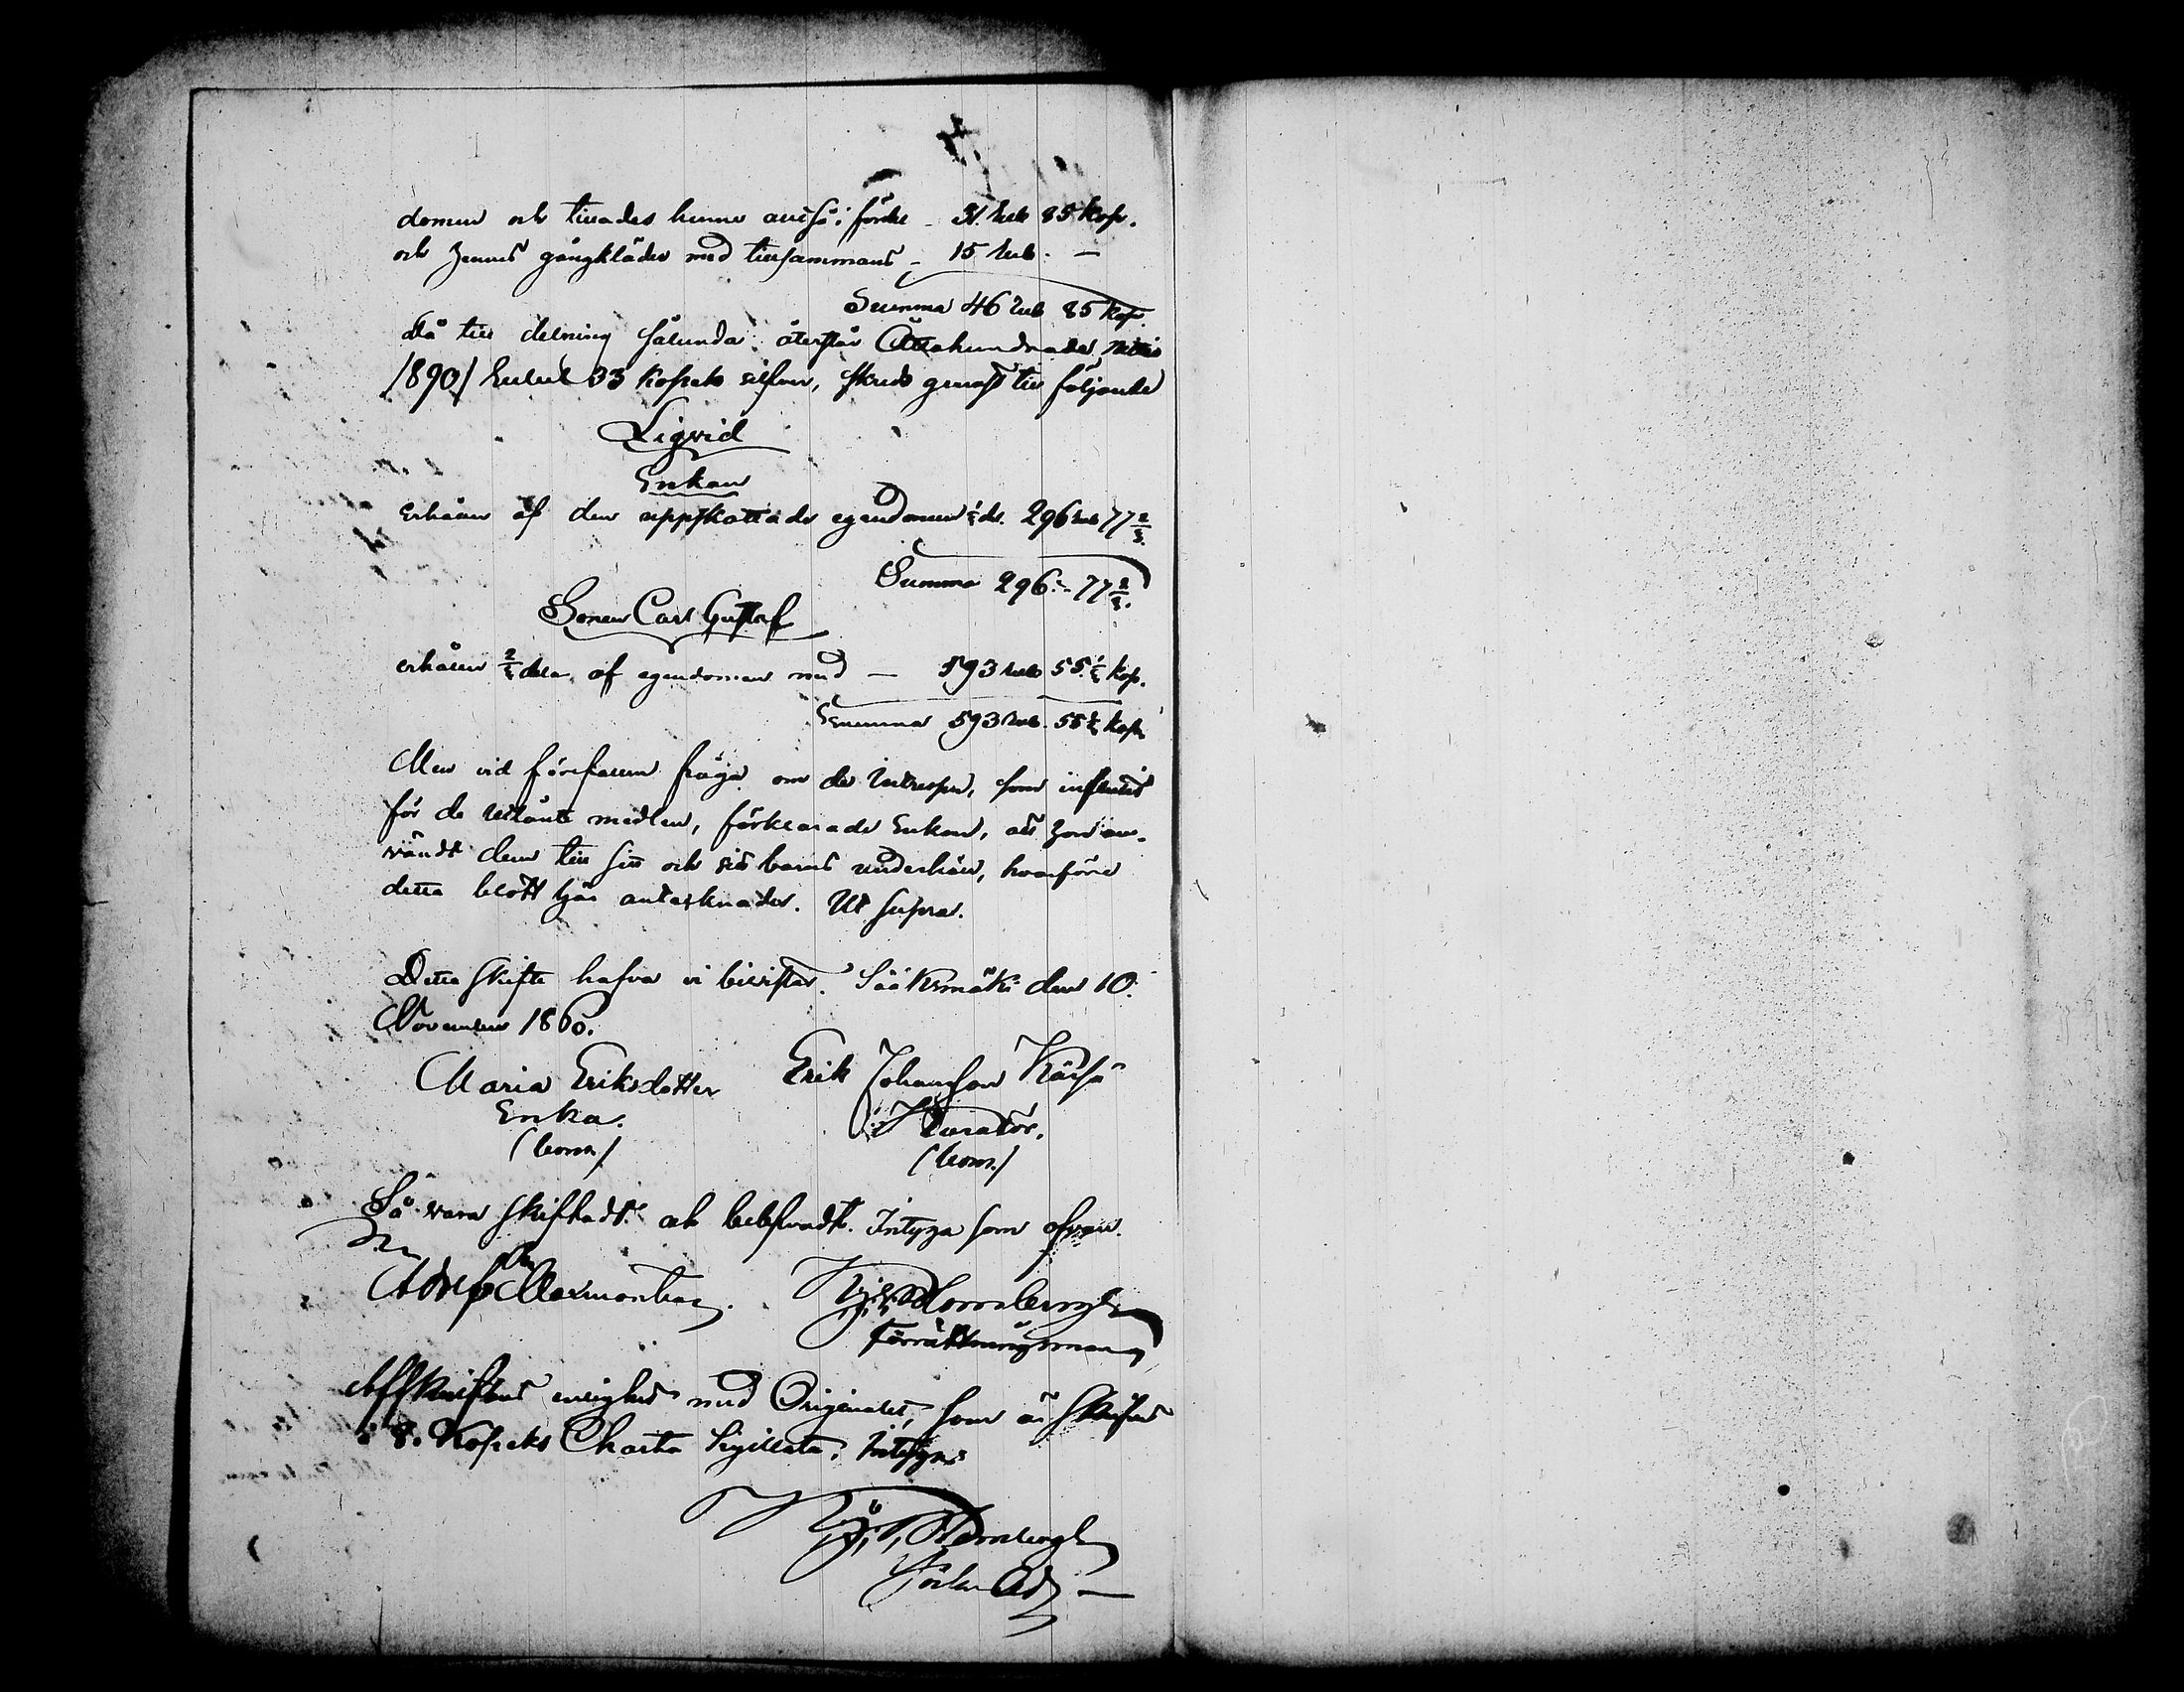 domen och tillades henne altså i förde - 31. Rub 85 Kop.
och hennes gångkläder med tillsammans - 15 Rub. -
Summa 46 Rub 85 Kop.
då till delning sålunda återstår Åttahundrade nittio
/890/ Rubel 33 Kopek silfver, skreds genast till följande
Liqvid
Enkan
erhåller af den uppskattade egendomen 1/3 del. 296 Rub 77 2/3.
Summa 296:- 77 2/3.
Sonen Carl Gustaf
erhåller 2/3 delar af egendomen med - 593 Rub 55 1/3 Kop.
Summa 593 Rub. 55 1/3 Kop.
Men vid förefallen fråga om de intressen, som influtit
för de utlånte medlen, förklarade Enkan, att hon an-
vändt dem till sitt och sitt barns underhåll, hvarföre
detta blott här antecknades. Ut supra.
Detta skifte hafva vi bevistat. Sääksmäki den 10.
November 1860.
Maria Eriksdotter Erik Johansson
Enka. Kurator.
(bom.) (bom.)
Så vara skiftadt och befunnit. Intyga som ofvan.
Adolf
Förrättningsman
Afskriftens enlighet med Originalet, som är skrifvet
å 8. Kopeks Charta Sigillata, intygar